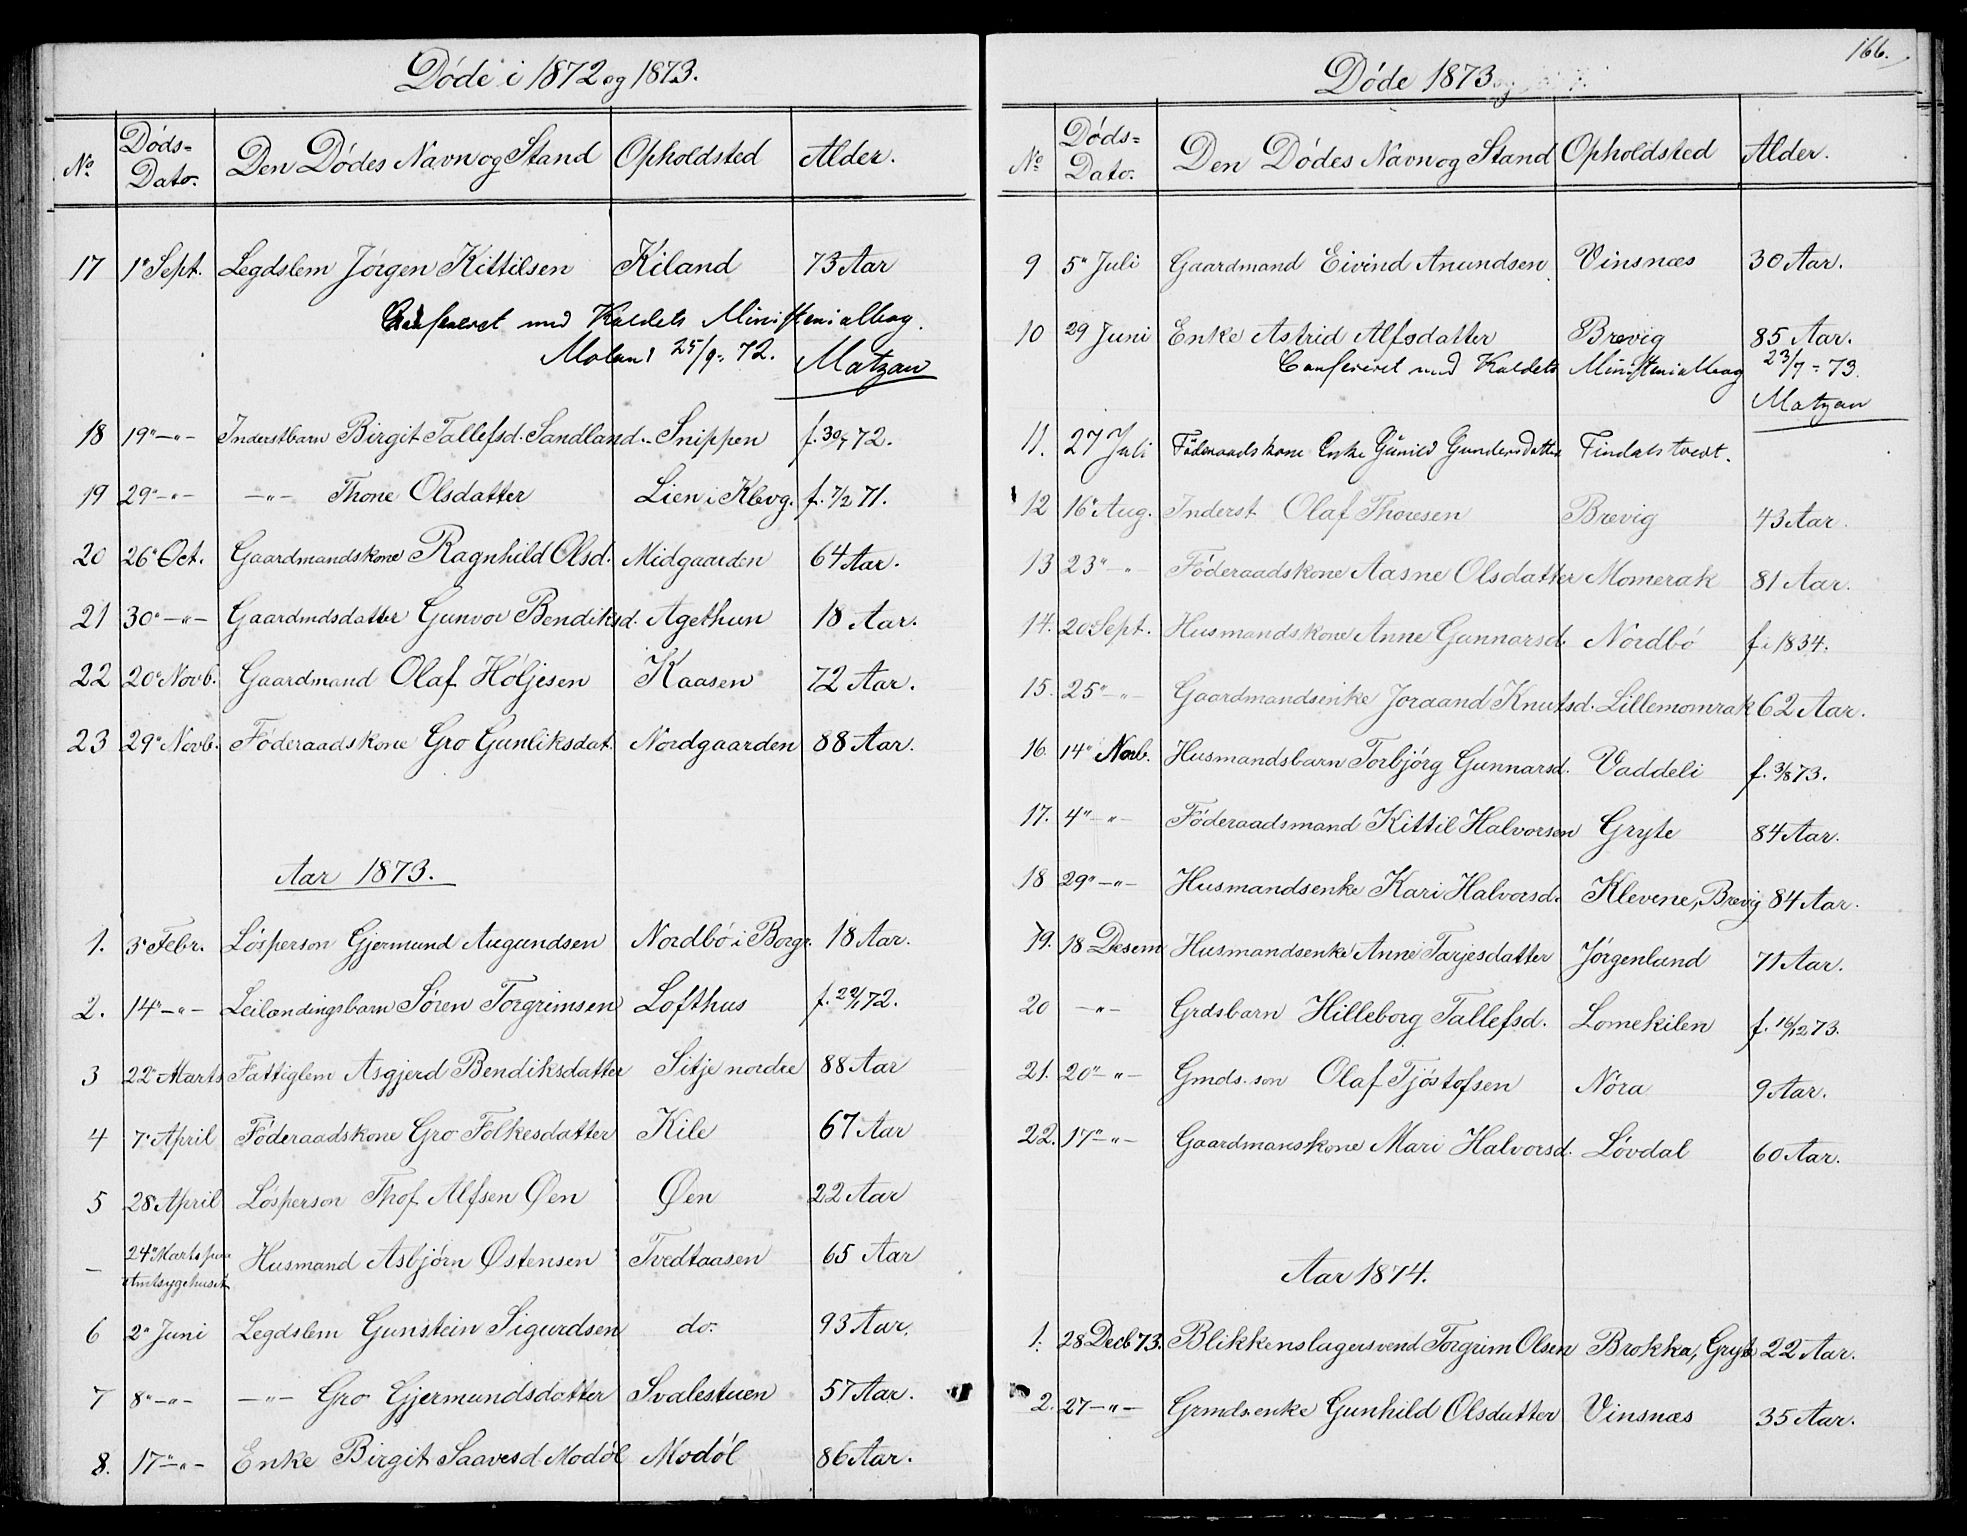 Døde i 1872 og 1873.
No Døds-Dato. Den Dødes Navn og Stand Opholdsted Alder.
17 1" Sept. Legdslem Jörgen Kittilsen Kiland 73 Aar
Confereret med Kaldets Ministerialbog.
Moland 25/9-72. Matzau
18 19" -"- Inderstbarn Birgit Tallefsd. Sandland. Snippen f. 30/7 72.
19 29" -"- -"- Thone Olsdatter Lien i Klevg. f. 7/2 71.
20 26" Oct. Gaardmandskone Ragnhild Olsd. Midgaarden 64 Aar.
21 30" -"- Gaardmdsdatter Gunvor Bendiksd. Agethun 18 Aar.
22 20" Novb. Gaardmand Olaf Höljesen Kaasen 72 Aar.
23 29" Novb. Föderaadskone Gro Gunliksdat. Nordgaarden 88 Aar.
Aar 1873.
1. 3" Febr. Lösperson Gjermund Augundsen Nordbö i Borgr. 18 Aar.
2. 14" -"- Leilændingsbarn Sören Torgrimsen Lofthus f. 22/1 72.
3 22" Marts Fattiglem Asgjerd Bendiksdatter Sitje nordre 88 Aar
4 7" April Föderaadskone Gro Folkesdatter Kile 67 Aar
5 28" April Lösperson Thof Alfsen Øen Øen 22 Aar
- 24" Marts paa Amtsygehuset Husmand Asbjørn Østensen Tvedtaasen 65 Aar
6 2" Juni Legdslem Gunstein Sigurdsen do. 93 Aar.
7 8" -"- -"- Gro Gjermundsdatter Svalestuen 57 Aar.
8. 17" -"- Enke Birgit Saavesd Modöl Modöl 86 Aar.
166.
Døde 1873
No Døds-Dato. Den Dødes Navn og Stand Opholdsted Alder.
9 5" Juli Gaardmand Eivind Anundsen Vinsnæs 30 Aar.
10 29 Juni Enke Astrid Alfsdatter Brevig 85 Aar.
Confereret med Kaldets Ministerialbog 23/7-73.
Matzau
11. 27 Juli Föderaadskone Enke Gunild Gundersdatter Tindalstvedt.
12 16" Aug. Inderst Olaf Thoresen Brevig 43 Aar.
13 23" -"- Föderaadskone Aasne Olsdatter Momerak 81 Aar.
14. 20 Sept. Husmandskone Anne Gunnarsd. Nordbö f. 1834.
15. 25" -"- Gaardmandsenke Joraand Knutsd. Lillemomrak 62 Aar.
16. 14" Novb. Husmandsbarn Torbjörg Gunnarsd. Vaddeli f. 3/8 73.
17. 4" -"- Föderaadsmand Kittil Halvorsen Gryte 84 Aar.
18 29" -"- Husmandsenke Kari Halvorsd. Klevene, Brevig 84 Aar.
19. 18 Desem Husmandsenke Anne Tarjesdatter Jörgenlund 71 Aar.
20 -"- Grdsbarn Hilleborg Tallefsd. Lomekilen f. 16/12 73.
21. 20" -"- Gmds. son Olaf Tjöstofsen Nöra 9 Aar.
22. 17" -"- Gaardmanskone Mari Halvorsd. Lövdal 60 Aar.
Aar 1874.
1. 28 Decb 73. Blikkenslagersvend Torgrim Olsen Brokka, Gryte 22 Aar.
2. 27 -"- Grmdsenke Gunhild Olsdatter Vinsnæs 35 Aar.